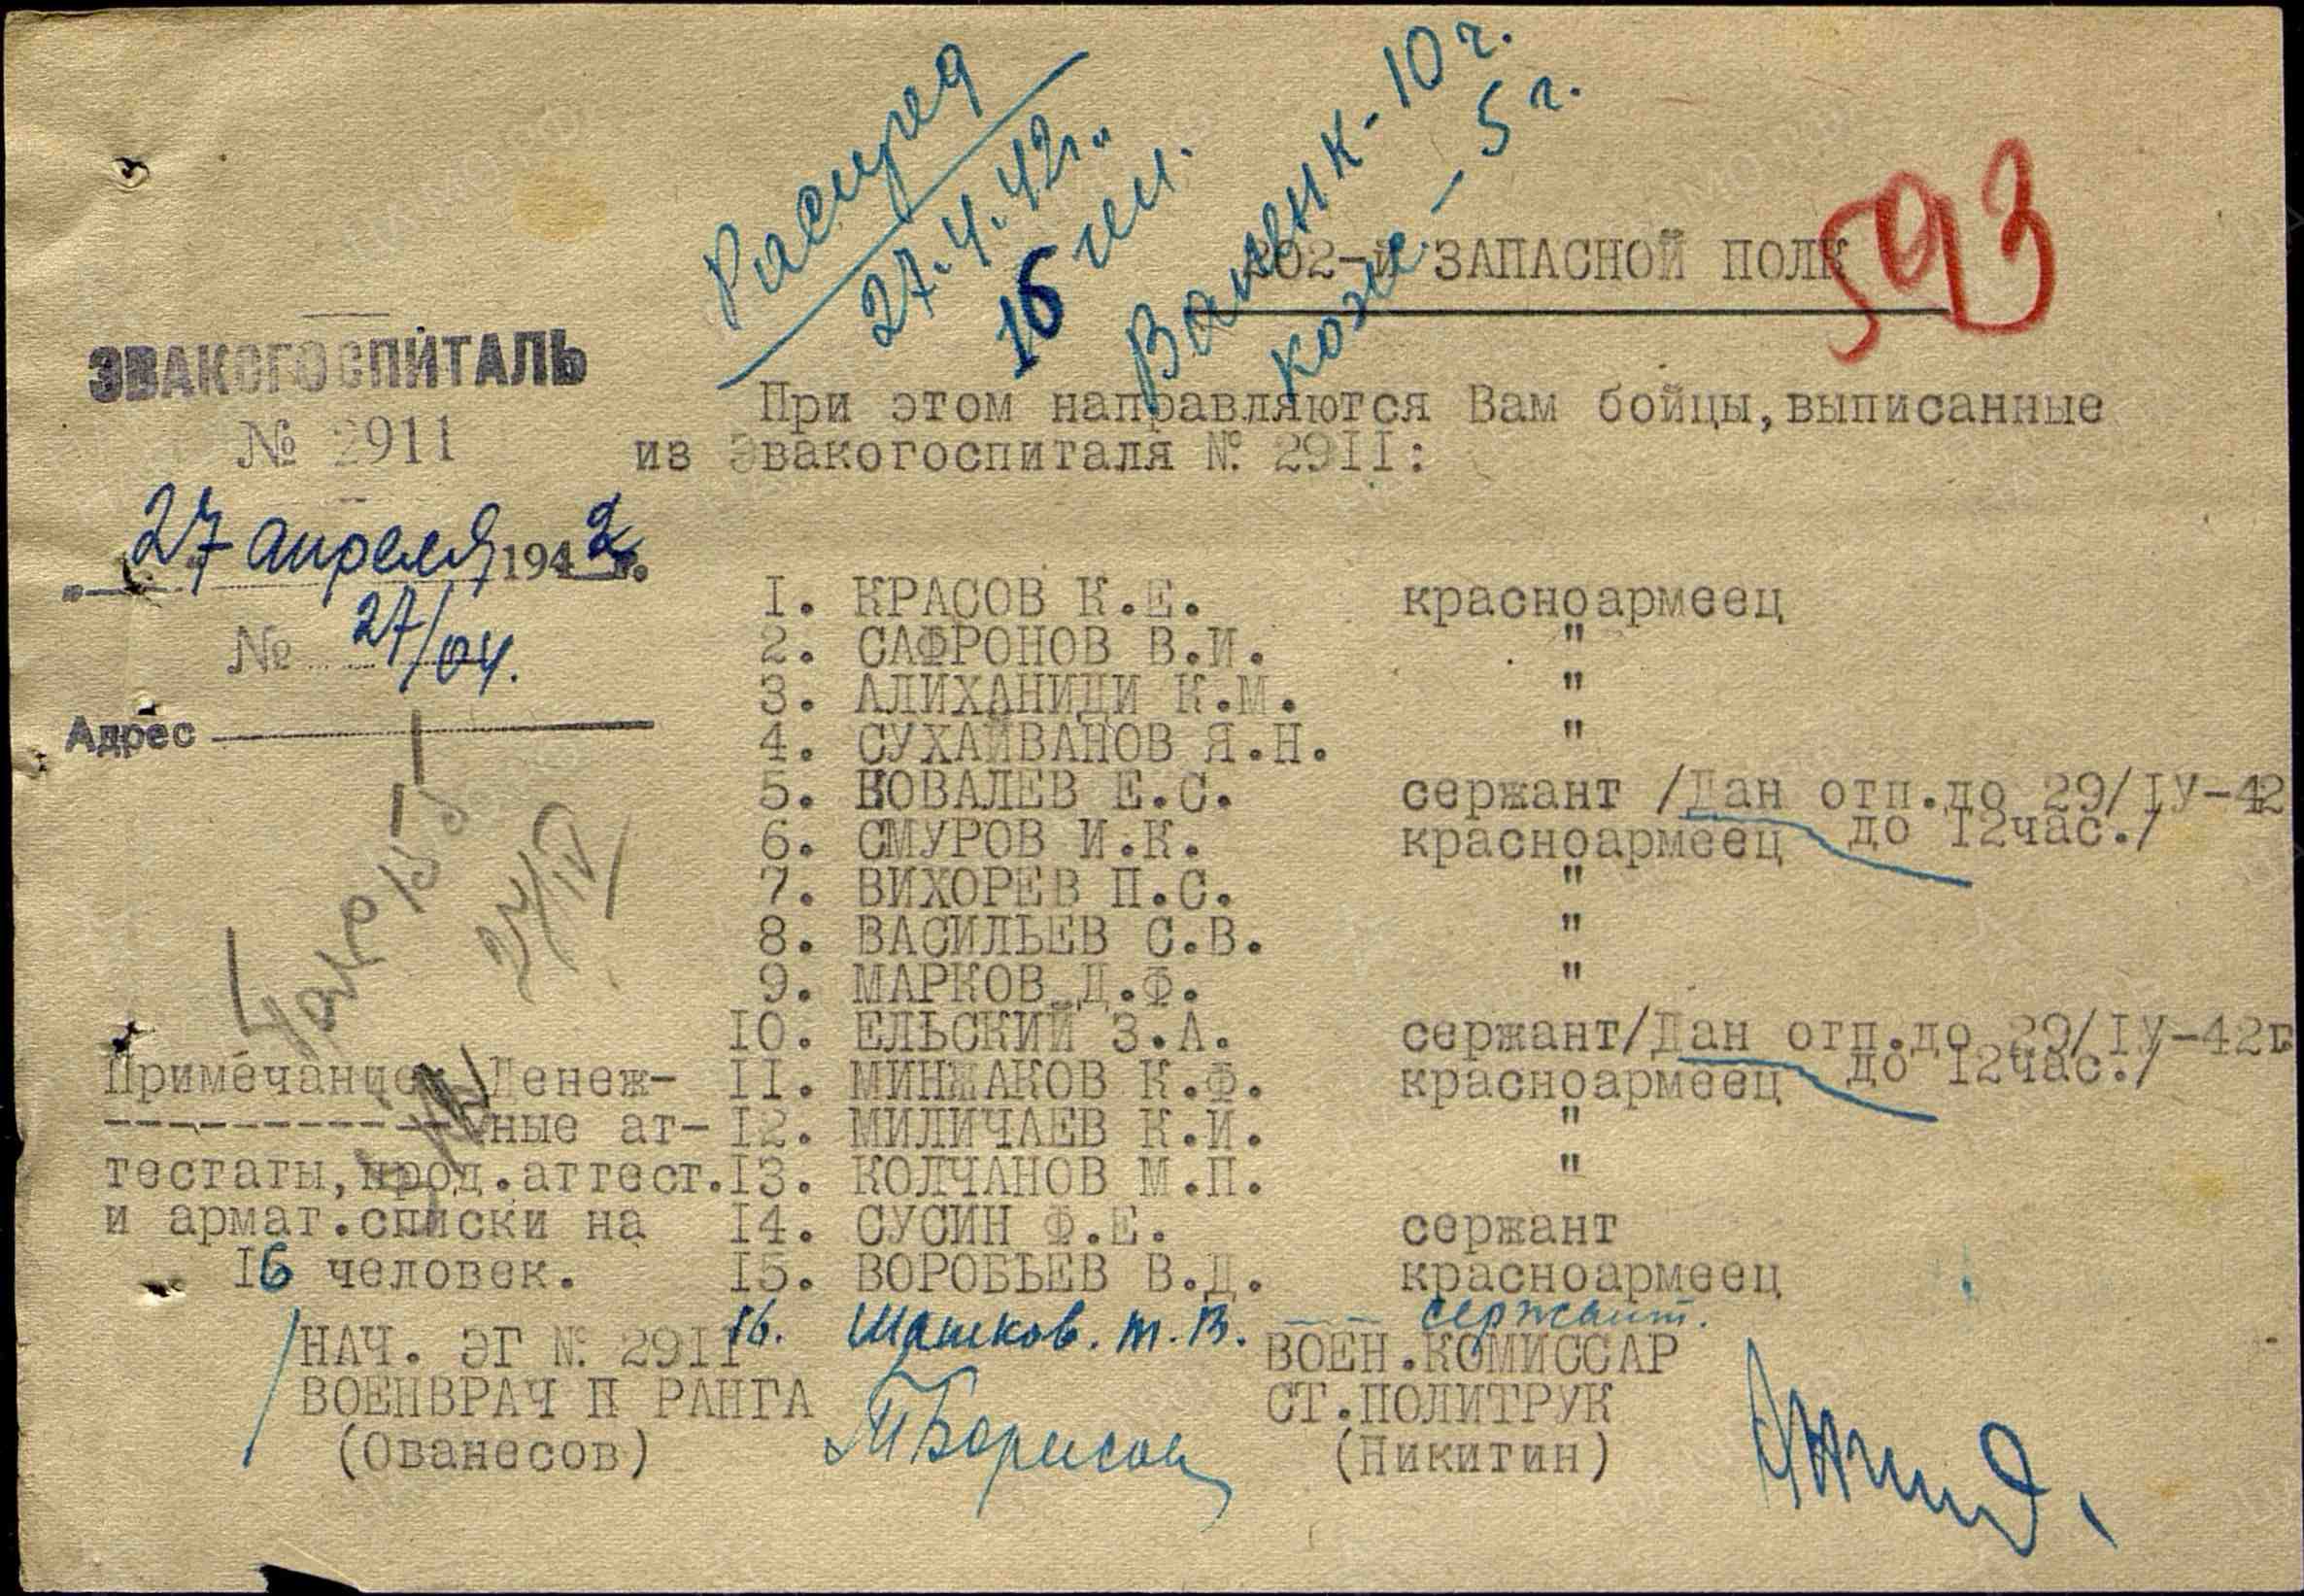 Распред
27.4.42г.
16 чел.
Валенк - 10 г.
кож - 5 г.
593
202-й ЗАПАСНОЙ ПОЛК
ЭВАКОГОСПИТАЛЬ
№ 2911
27 апреля 1942 г.
№ 27/04.
Адрес
При этом направляются Вам бойцы,выписанные
из Эвакогоспиталя № 29II:
I. КРАСОВ К.Е. красноармеец
2. САФРОНОВ В.И. "
3. АЛИХАНИДИ К.М. "
4. СУХАИВАНОВ Я.Н. "
5. КОВАЛЕВ Е.С. сержант /Дан отп.до 29/IУ-42
до I2час./
6. СМУРОВ И.К. красноармеец
7. ВИХОРЕВ П.С. "
8. ВАСИЛЬЕВ С.В. "
9. МАРКОВ Д.Ф. "
I0. ЕЛЬСКИЙ З.А. сержант/Дан отп.до 29/IУ-42г
до I2час./
II. МИНЖАКОВ К.Ф. красноармеец
I2. МИЛИЧАЕВ К.И. "
I3. КОЛЧАНОВ М.П. "
I4. СУСИН Ф.Е. сержант
I5. ВОРОБЬЕВ В.Д. красноармеец
16. Шашков. т. В. сержант.
27/IV
Примечание: Денеж-
ные ат-
тестаты,прод.аттест.
и армат.списки на
I6 человек.
НАЧ. ЭГ № 29II
ВОЕНВРАЧ П РАНГА
(Ованесов)
ВОЕН.КОМИССАР
СТ.ПОЛИТРУК
(Никитин)